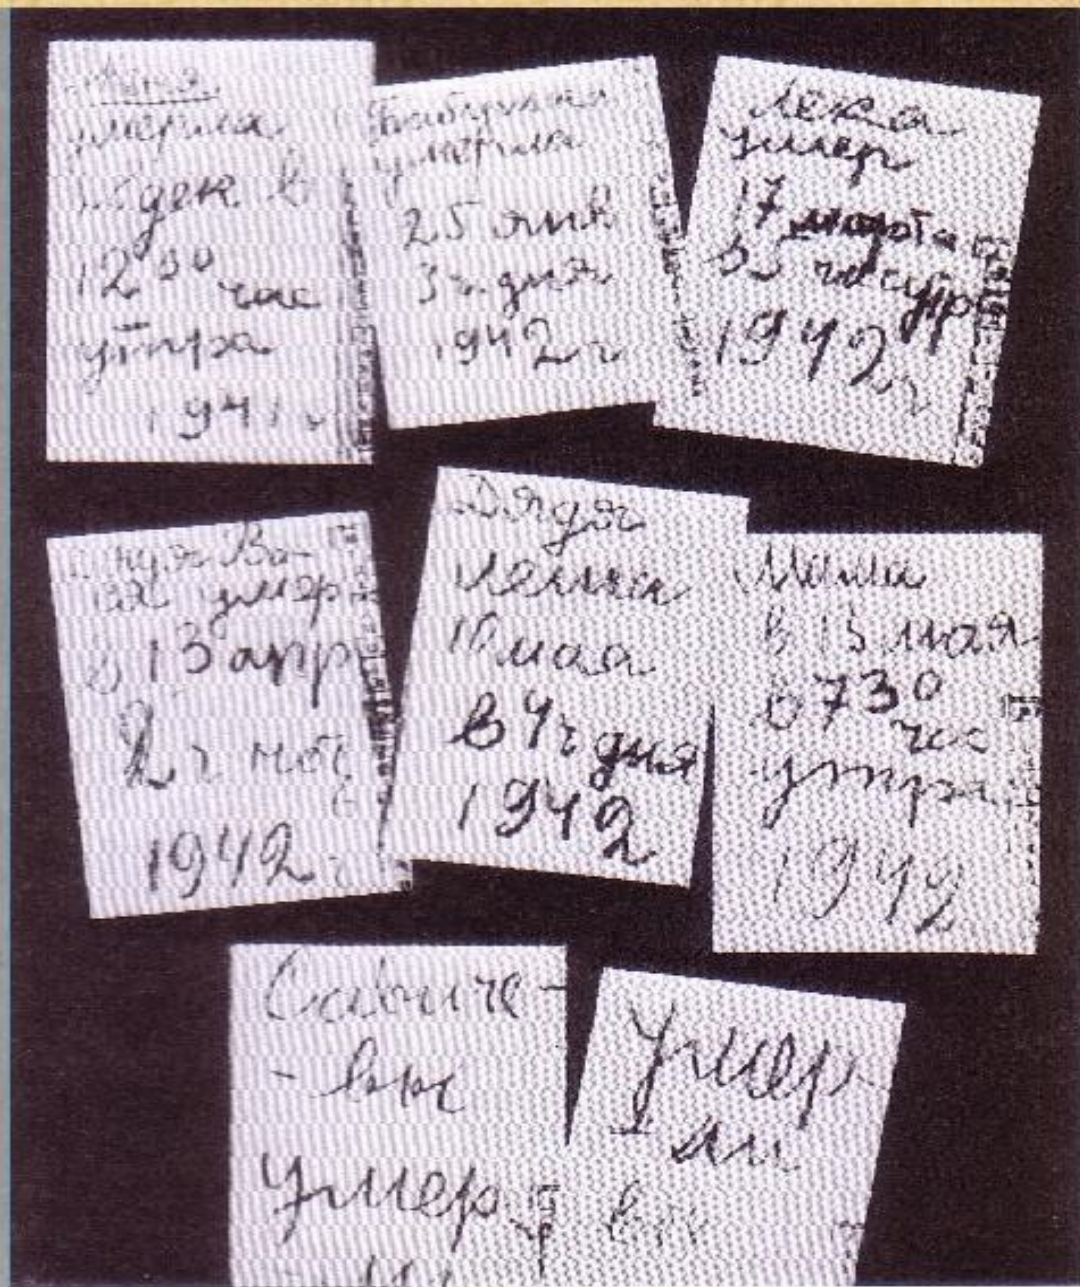 Женя
умерла
28 дек в
12 30 час
утра
1941 г
Бабушка
умерла
25 янв
3 ч. дня
1942 г
Лека
умер
17 марта
в 5 час утр
1942 г
Дядя Ва-
ся умер
в 13 апр
2 ч ноч
1942 г
Дядя
Леша
10 мая
в 4 ч дня
1942
Мама
в 13 мая
в 7 30
час
утра
1942
Савиче-
-вы
умер
Умер
ли
все